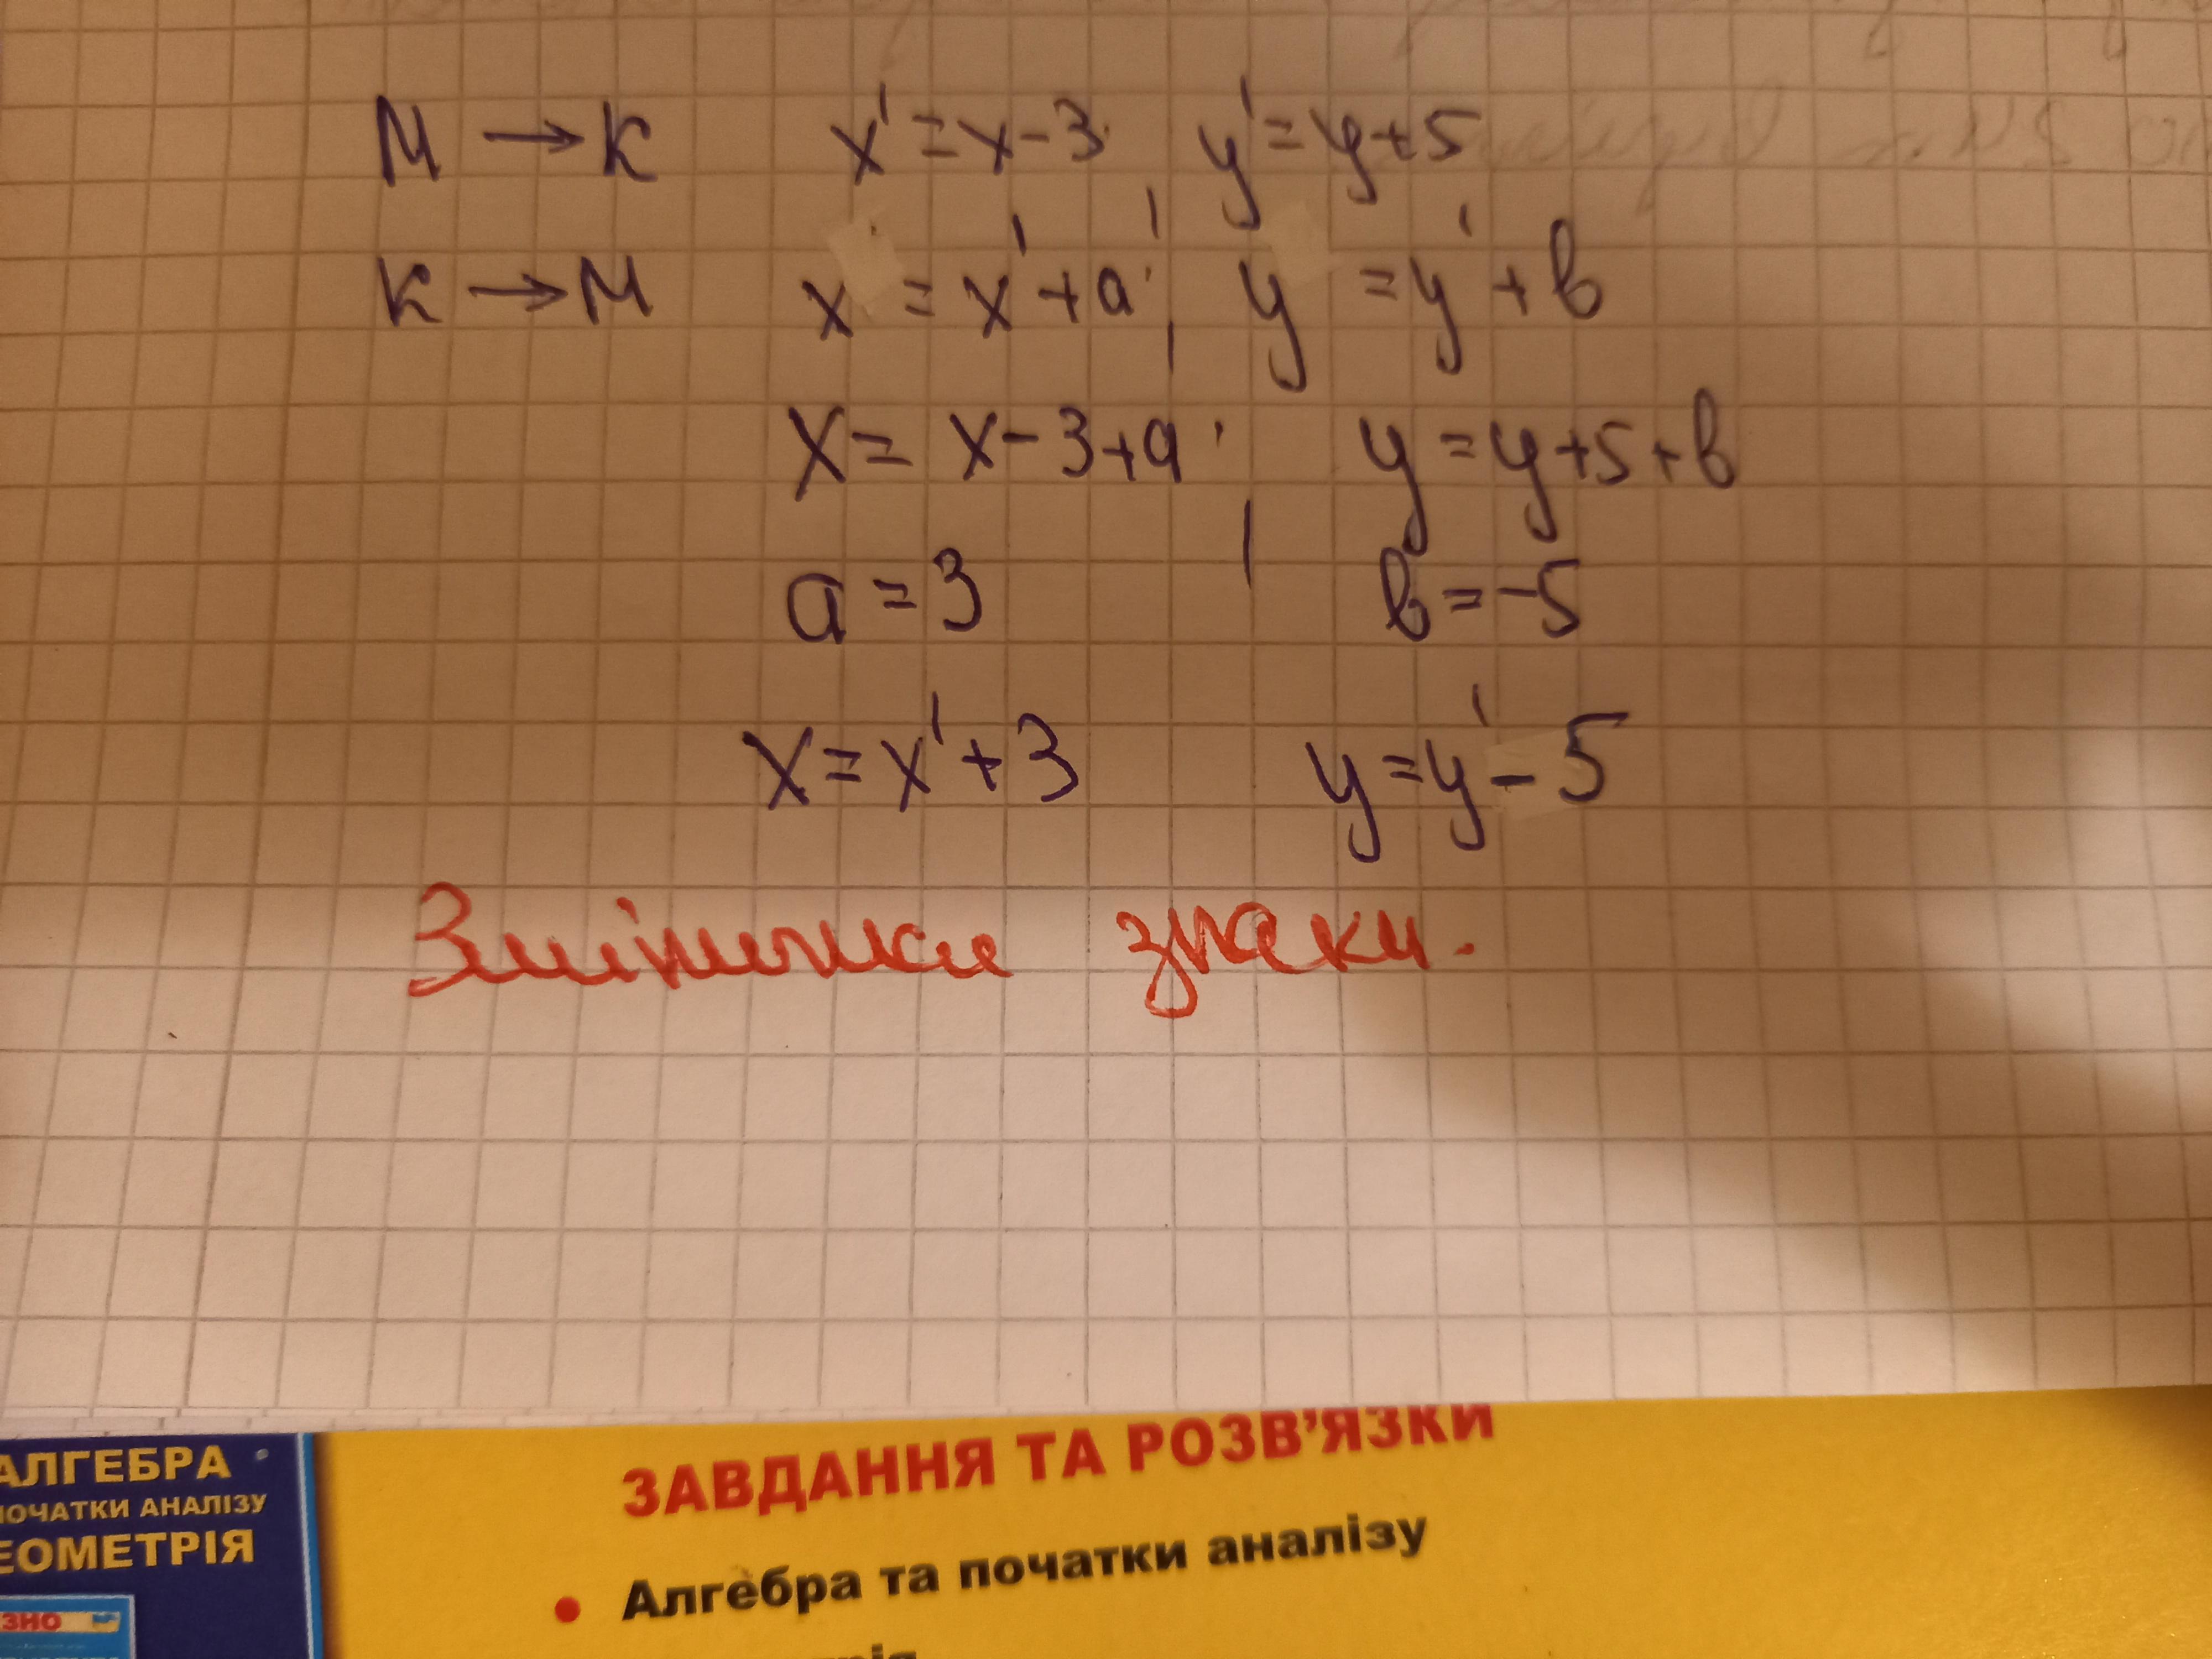 M → K x' = x - 3, y' = y + 5
K → M x = x' + a, y = y' + b
x = x - 3 + a, y = y + 5 + b
a = 3 b = -5
x = x' + 3 y = y' - 5
знаки.
ЗАВДАННЯ ТА РОЗВ'ЯЗКИ
АЛГЕБРА
ПОЧАТКИ АНАЛІЗУ
ЕОМЕТРІЯ
• Алгебра та початки аналізу
ЗНО